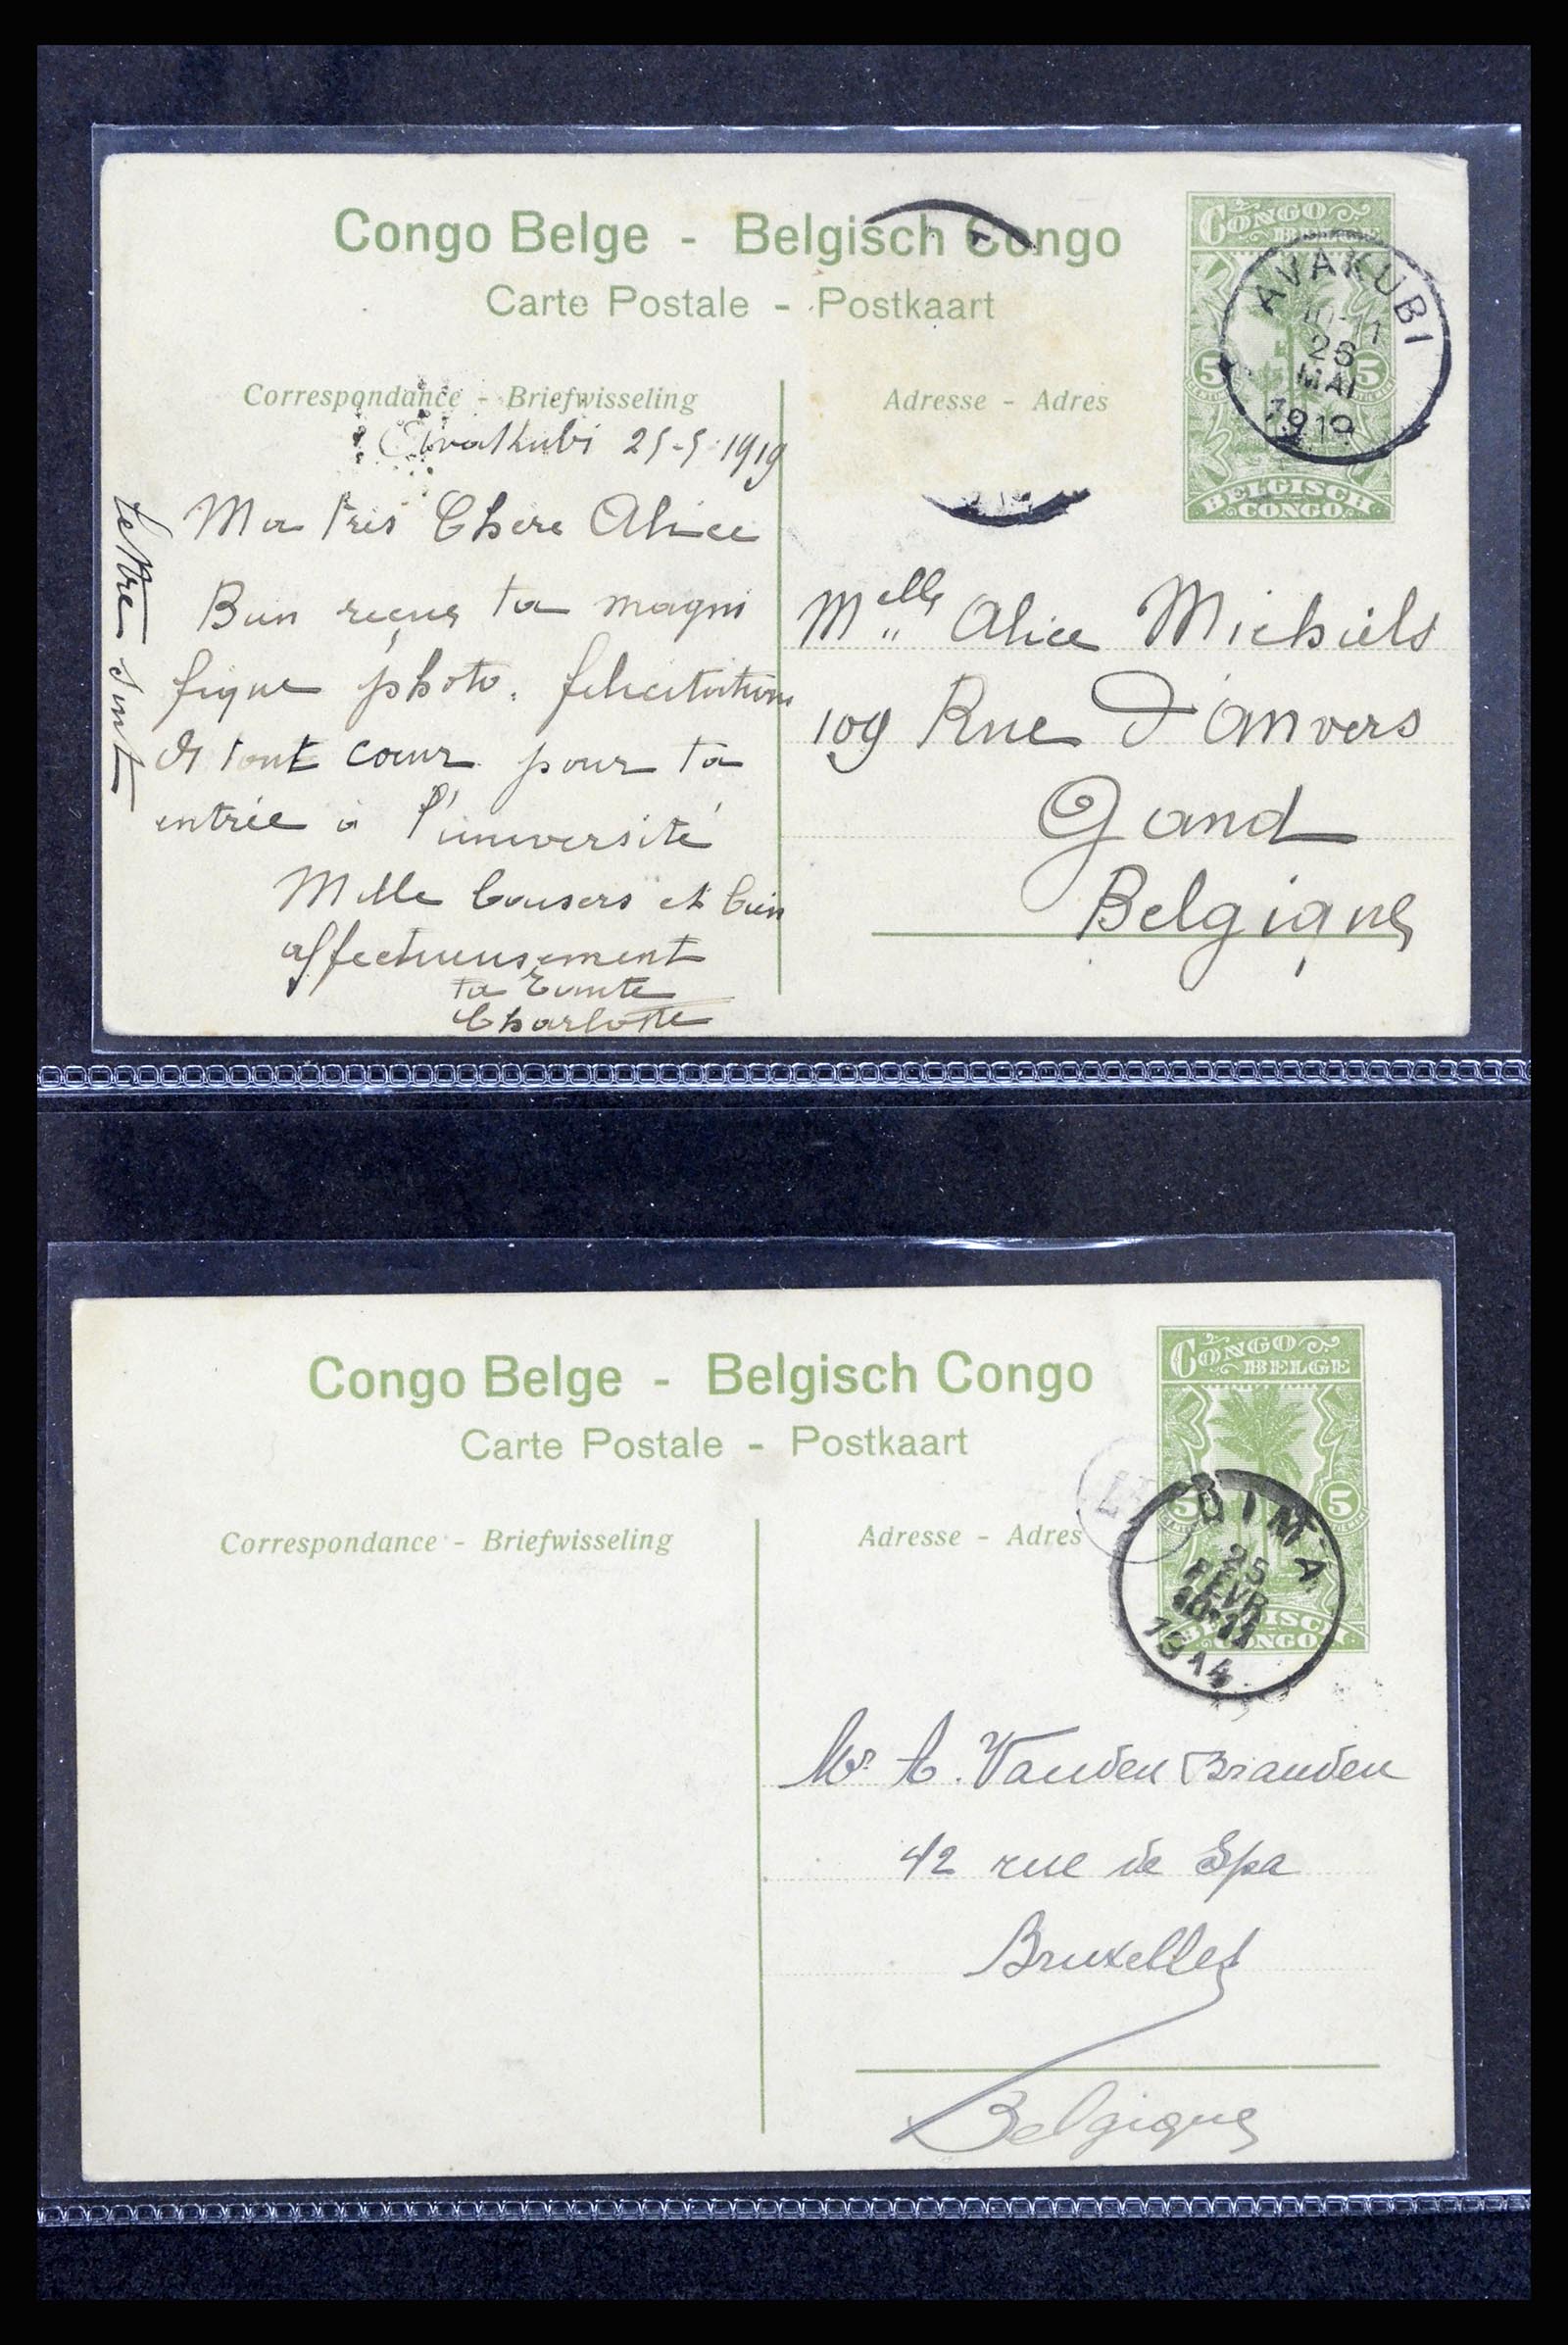 Congo Belge - Belgisch Congo
Carte Postale - Postkaart
CONGO
BELGE
5 5
BELGISCH
CONGO
AVAKUBI
10-11
26
MAI
1919
Correspondance - Briefwisseling
Adresse - Adres
Avakubi 25-5-1919
Ma très Chere Alice
Bien reçue ta magni
fique photo. felicitations
de tout cœur pour ta
entrée à l'université
Mille bousers et bien
affectueusement
ta Tante
Charlotte
lettre suit
Melle Alice Michiels
109 Rue d'Anvers
Gand
Belgique
Congo Belge - Belgisch Congo
Carte Postale - Postkaart
CONGO
BELGE
5 5
BELGISCH
CONGO
DIMA
25
FEVR
10-11
1914
Correspondance - Briefwisseling
Adresse - Adres
Mr A. Vanden Branden
42 rue de Spa
Bruxelles
Belgique